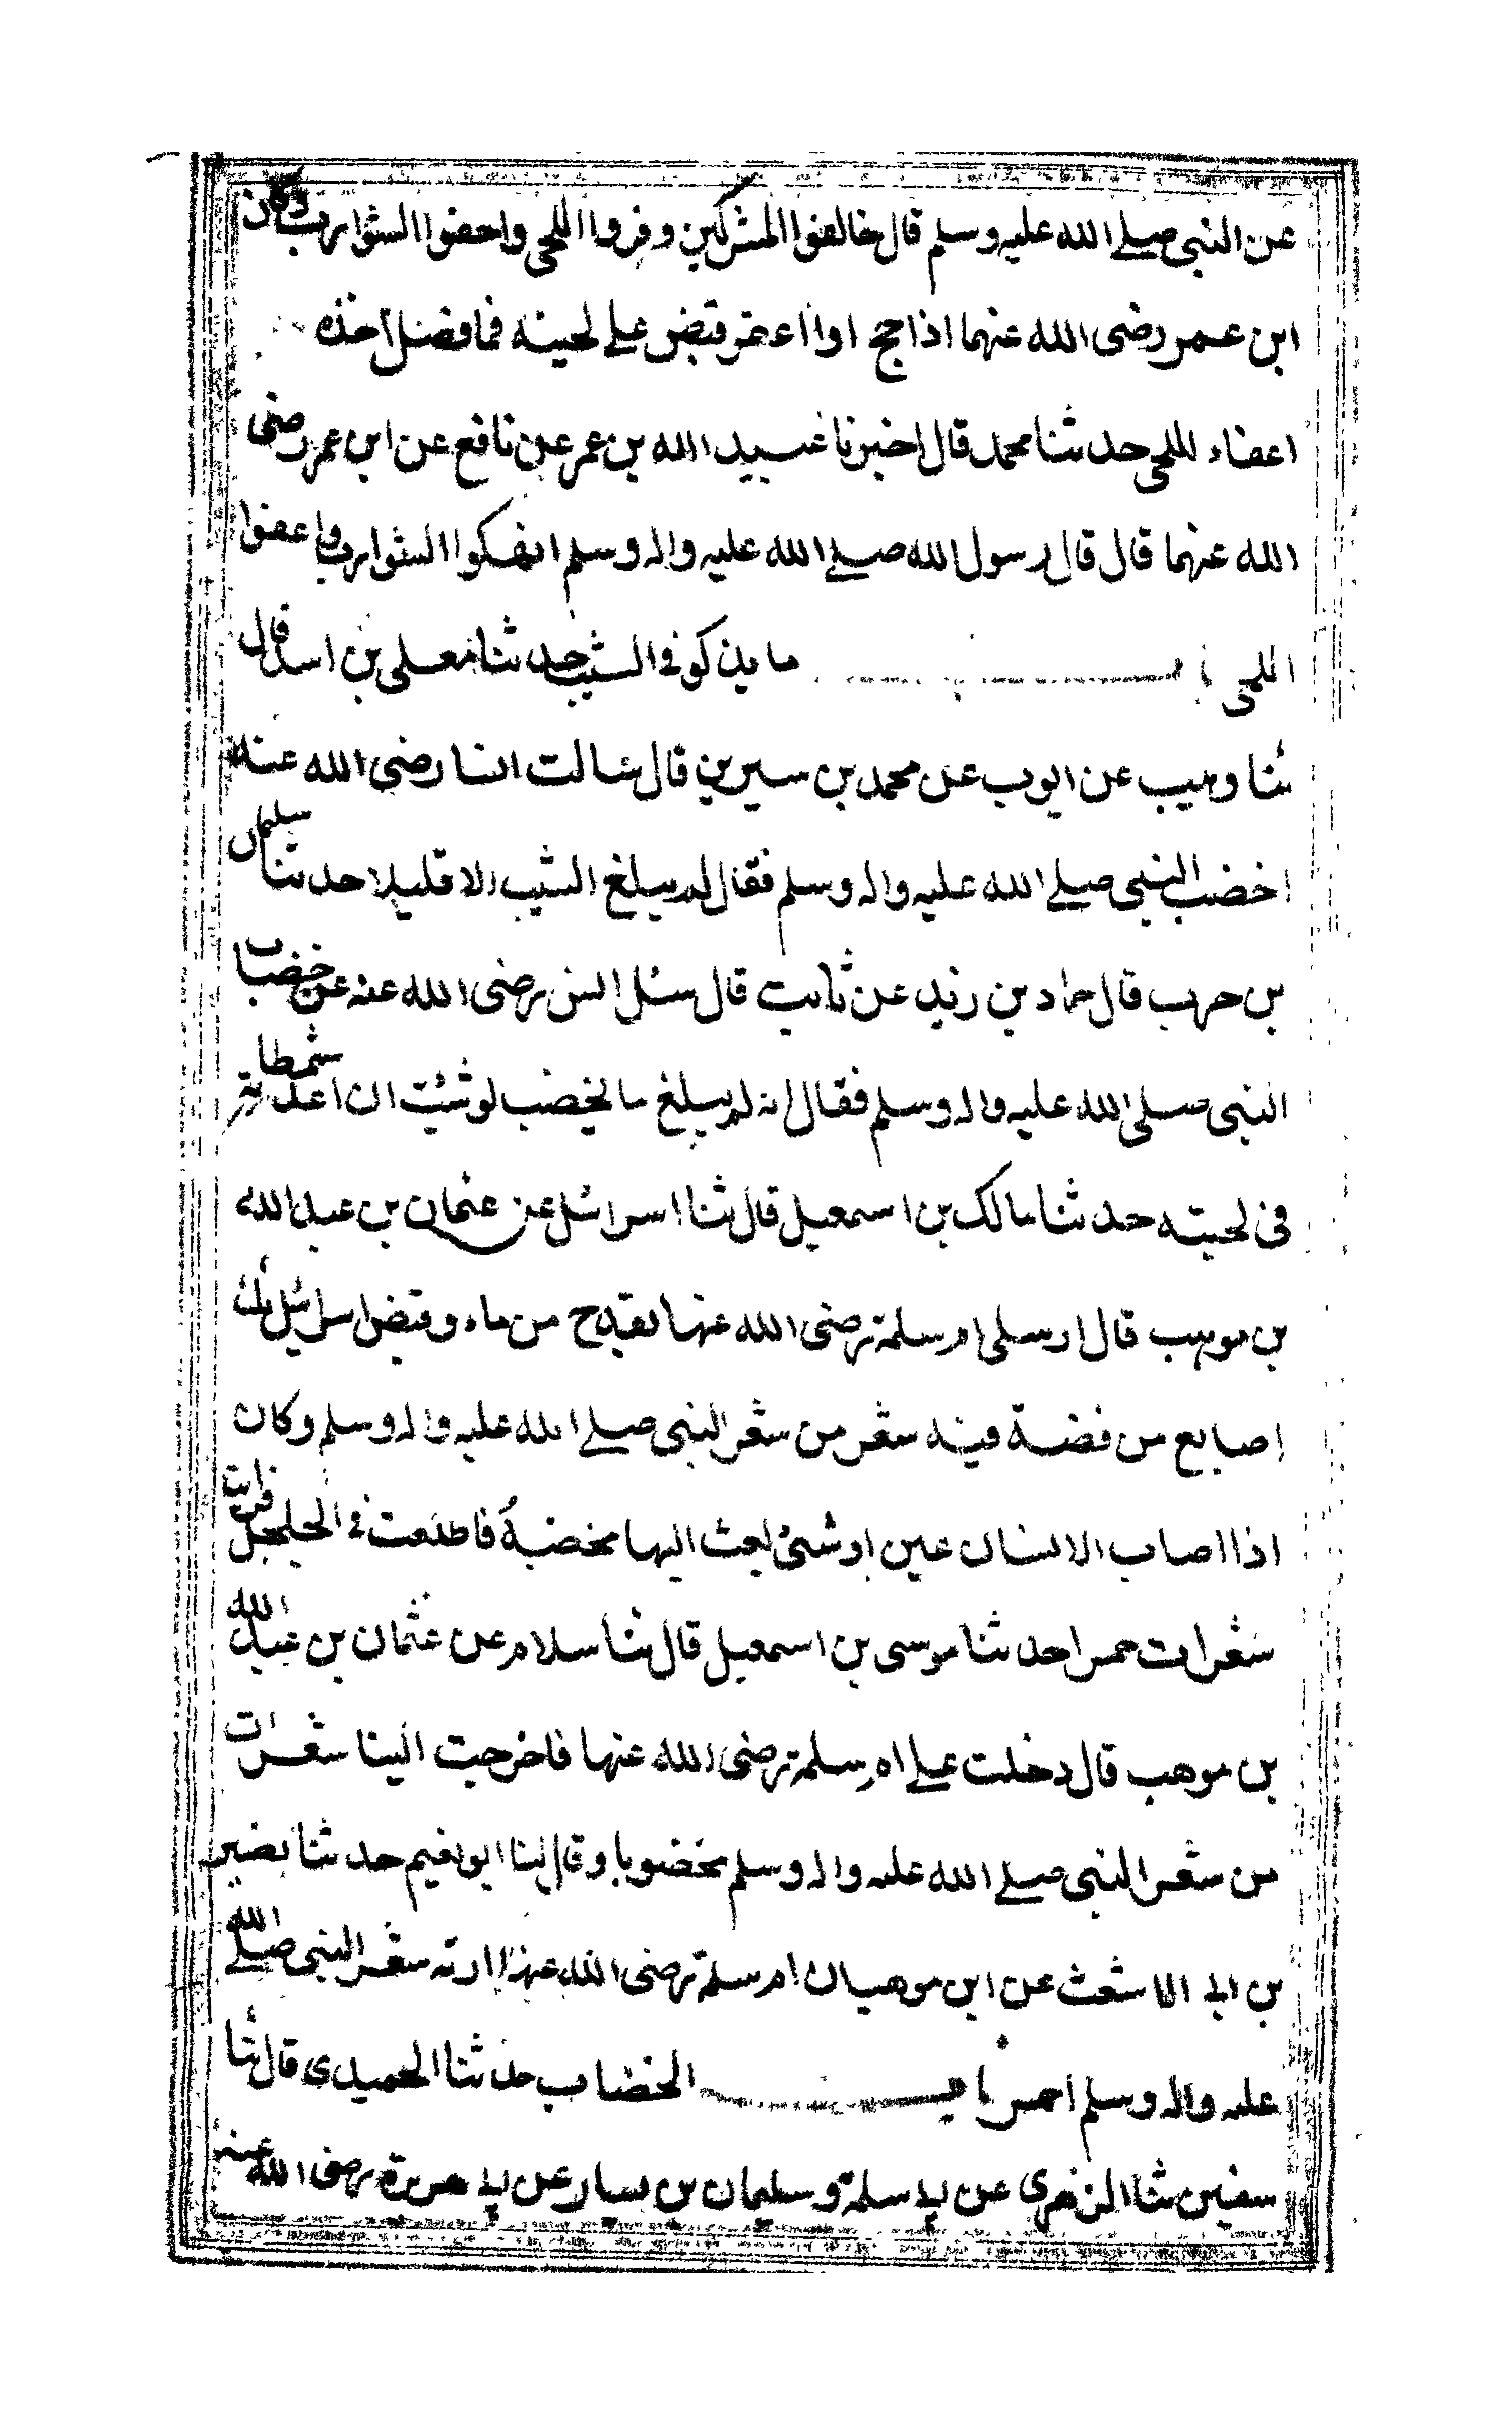 عن النبى صلے الله عليه وسلم قال خالفوا المشركين وفروا اللحى واحفوا الشوارب وكان
ابن عمر رضى الله عنهما اذا حج او اذا اعتمر قبض على لحيته فما فضل اخذه
اعفاء اللحى حدثنا محمد قال اخبرنا عبيد الله بن عمر عن نافع عن ابن عمر رضى
الله عنهما قال قال رسول الله صلے الله عليه واله وسلم انهكوا الشوارب واعفوا
اللحى باب ما يذكر فى الشيب حدثنا معلى بن اسد قال
ثنا وهيب عن ايوب عن محمد بن سيرين قال سالت انسا رضى الله عنه
اخضب النبى صلے الله عليه واله وسلم فقال لم يبلغ الشيب الا قليلا حدثنا سليمان
بن حرب قال حماد بن زيد عن ثابت قال سئل انس رضى الله عنه عن خضاب
النبى صلى الله عليه واله وسلم فقال انه لم يبلغ ما يخضب لوشئت ان اعد شمطاته
فى لحيته حدثنا مالك بن اسمعيل قال ثنا اسرائل عن عثمان بن عبد الله
بن موهب قال ارسلى ام سلمة رضى الله عنها بقدح من ماء وقبض اسرائيل ثلث
اصابع من فضة فيه شعر من شعر النبى صلے الله عليه واله وسلم وكان
اذا اصاب الانسان عين او شئ بعث اليها مخضبة فاطلعت فى الجلجل فرايت
شعرات حمرا حدثنا موسى بن اسمعيل قال ثنا سلام عن عثمان بن عبد الله
بن موهب قال دخلت على ام سلمة رضى الله عنها فاخرجت الينا شعرات
من شعر النبى صلے الله عليه واله وسلم مخضوبا وقال لنا ابو نعيم حدثنا نصير
بن ابى الاشعث عن ابن موهب ان ام سلمة رضى الله عنها ارته شعر النبى صلے الله
عليه واله وسلم احمر باب الخضاب حدثنا الحميدى قال ثنا
سفين ثنا الزهرى عن ابى سلمة وسليمان بن يسار عن ابى هريرة رضى الله عنه